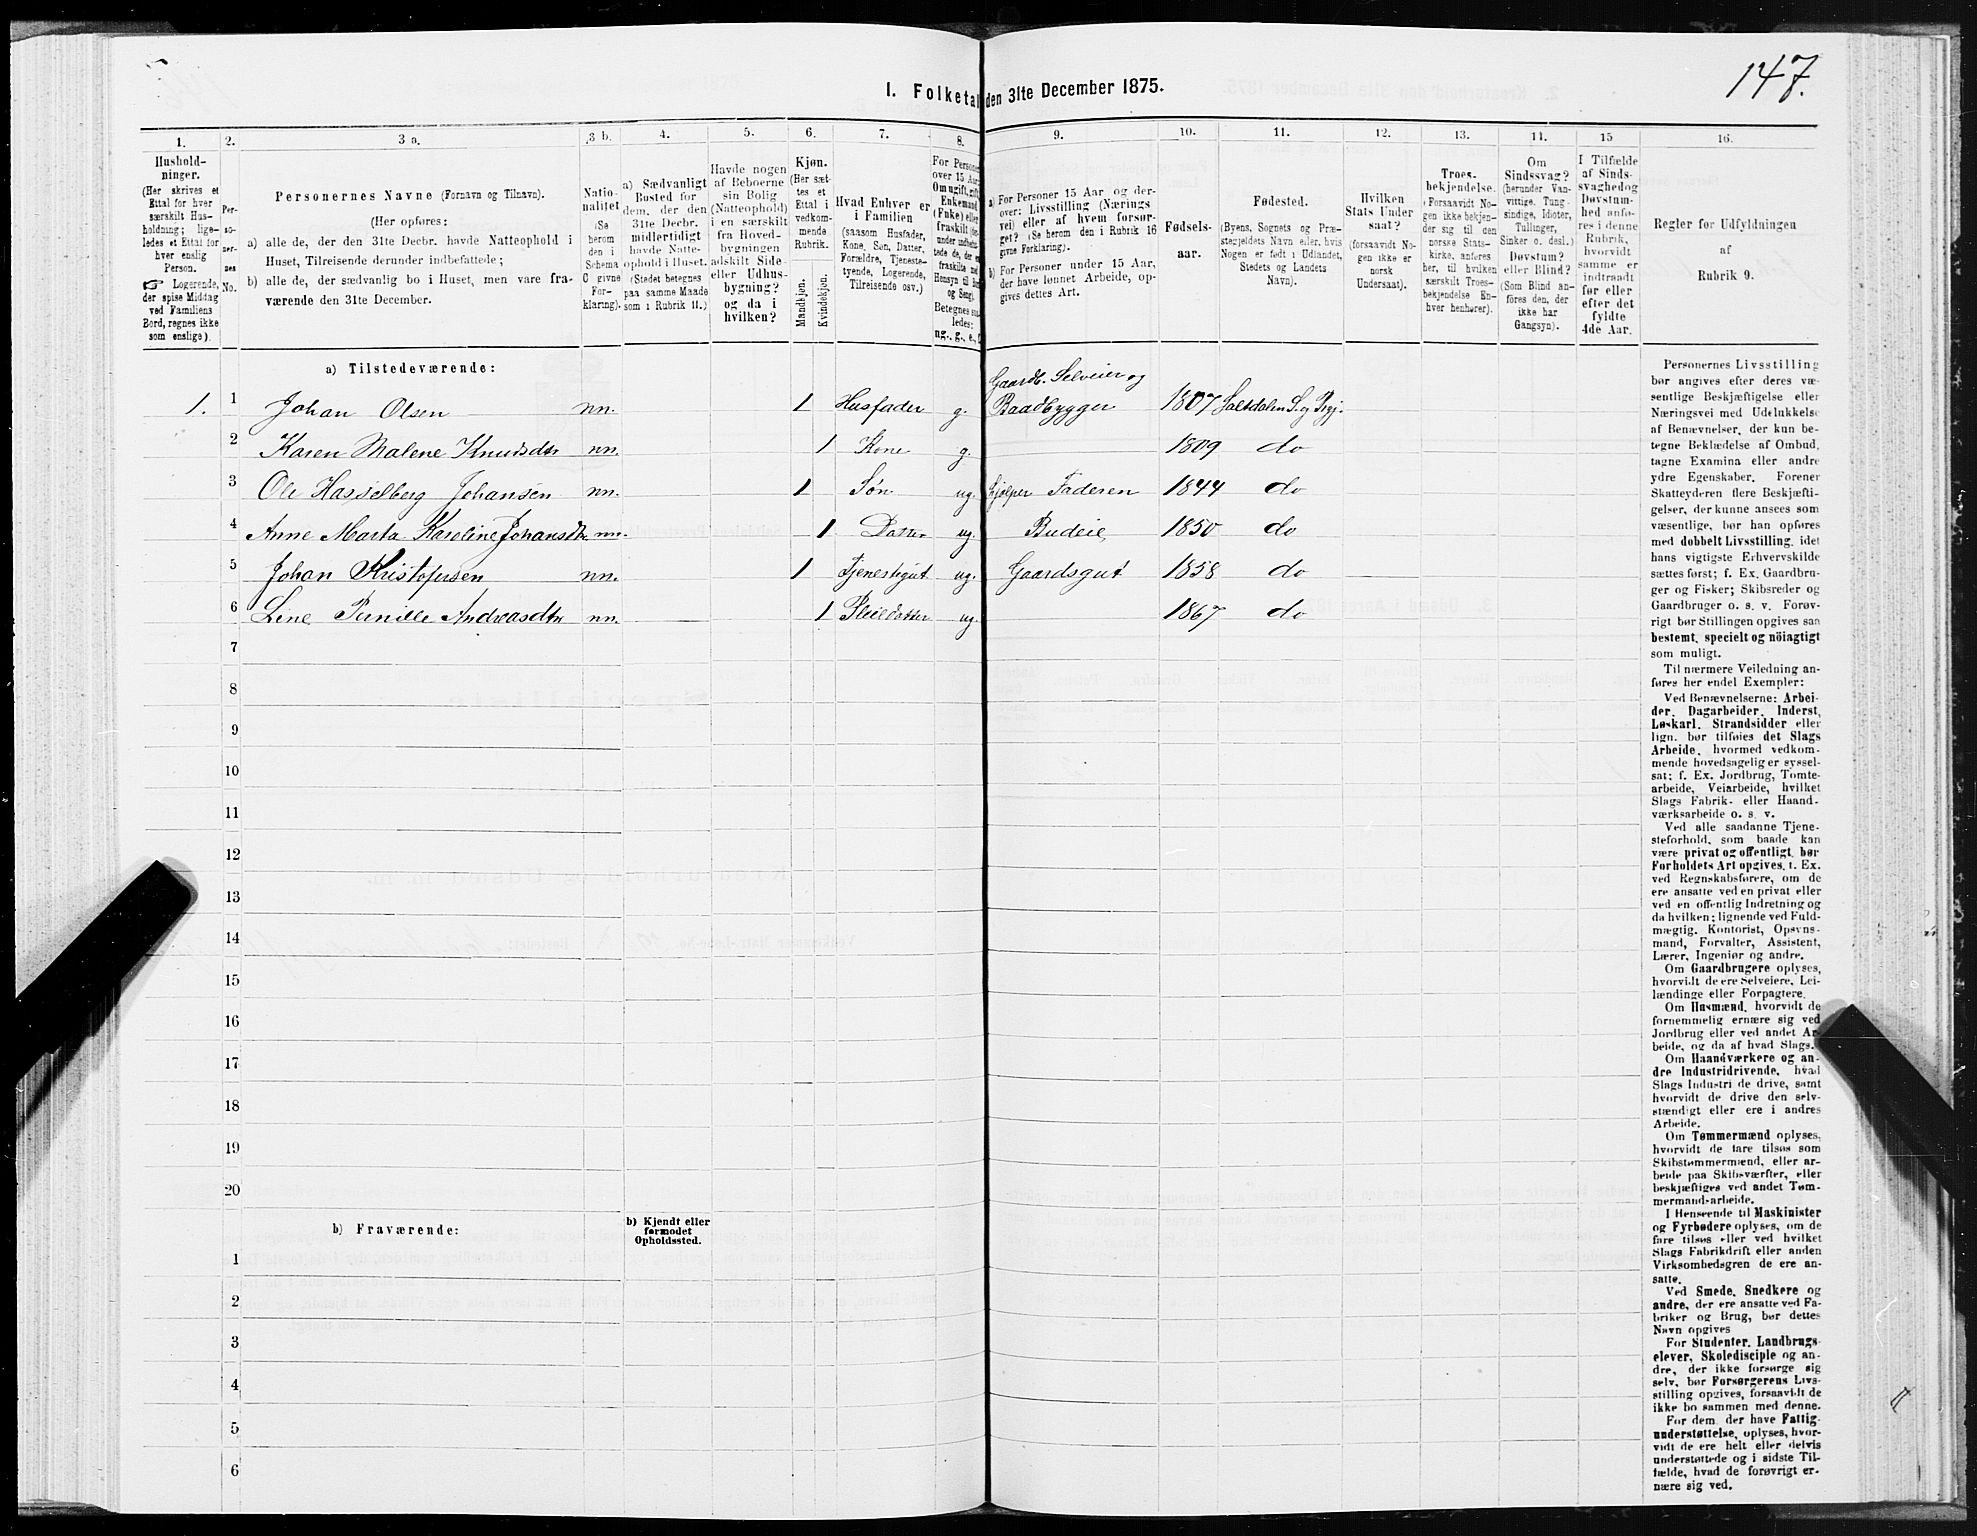 147.
I. Folketal den 31te December 1875.
1.
2.
3 a.
3 b.
4.
5.
6.
7.
8.
9.
10.
11.
12.
13.
14.
15
16.
Hushold-
ninger.
(Her skrives et
Ettal for hver
særskilt Hus-
holdning; lige-
ledes et Ettal for
hver enslig
Person.
☞ Logerende,
der spise Middag
ved Familiens
Bord, regnes ikke
som enslige).
Per-
so-
ner-
nes
No.
Personernes Navne (Fornavn og Tilnavn).
(Her opføres:
a) alle de, der den 31te Decbr. havde Natteophold i
Huset, Tilreisende derunder indbefattede;
b) alle de, der sædvanlig bo i Huset, men vare fra-
værende den 31te December.
Natio-
nalitet
(Se
herom
den i
Schema
C givne
For-
klaring).
a) Sædvanligt
Bosted for
dem, der den
31te Decbr.
midlertidigt
havde Natte-
ophold i Huset.
(Stedet betegnes
paa samme Maade
som i Rubrik 11.)
Havde nogen
af Beboerne
sin Bolig
(Natteophold)
i en særskilt
fra Hoved-
bygningen
adskilt Side-
eller Udhus-
bygning?
og da i
hvilken?
Kjøn.
(Her sæt-
tes et
Ettal i
vedkom-
mende
Rubrik.
Mandkjøn.
Kvindekjøn.
Hvad Enhver er
i Familien
(saasom Husfader,
Kone, Søn, Datter,
Forældre, Tjeneste-
tyende, Logerende,
Tilreisende osv.)
For Personer
over 15 Aar:
Om ugift, gift,
Enkemand
(Enke) eller
fraskilt
Betegnes saa-
ledes:
ug., g., e.,
a) For Personer 15 Aar og der-
over: Livsstilling (Nærings-
vei) eller af hvem forsør-
get? (Se herom den i Rubrik 16
givne Forklaring).
b) For Personer under 15 Aar,
der have lønnet Arbeide, op-
gives dettes Art.
Fødsels-
aar.
Fødested.
(Byens, Sognets og Præ-
stegjeldets Navn eller, hvis
Nogen er født i Udlandet,
Stedets og Landets
Navn).
Hvilken
Stats Under
saat?
(forsaavidt No-
gen ikke er
norsk
Undersaat).
Troes-
bekjendelse.
(Forsaavidt No-
gen ikke bekjen-
der sig til den
norske Stats-
kirke, anføres
her, til hvilken
særskilt Troes-
bekjendelse En-
hver henhører).
Om
Sindssvag?
(herunder Van-
vittige, Tung-
sindige, Idioter,
Tullinger,
Sinker o. desl.)
Døvstum?
eller Blind?
(Som Blind an-
føres den, der
ikke har
Gangsyn).
I Tilfælde
af Sinds-
svaghed og
Døvstum-
hed anfø-
res i denne
Rubrik,
hvorvidt
samme er
indtraadt
før eller
efter det
fyldte
4de Aar.
Regler for Udfyldningen
af
Rubrik 9.
a) Tilstedeværende:
Gaardb. Selveier og
1. 1 Johan Olsen nn. 1 Husfader g. Baadbygger 1807 Saltdalen S. og Prgj.
2 Karen Malene Knudsdtr nn. 1 Kone g. 1809 do
3 Ole Hasselberg Johansen nn. 1 Søn ug. hjelper Faderen 1844 do
4 Anne Marta Karoline Johansdtr. nn. 1 Datter ug. Budeie 1850 do
5 Johan Kristofersen nn. 1 Tjenestegut ug. Gaardsgut 1858 do
6 Line Pernille Andreasdtr nn. 1 Pleiedatter ug. 1867 do
7
8
9
10
11
12
13
14
15
16
17
18
19
20
b) Fraværende:
b) Kjendt eller
formodet
Opholdssted.
1
2
3
4
5
6
Personernes Livsstilling
bør angives efter deres væ-
sentlige Beskjæftigelse eller
Næringsvei med Udelukkelse
af Benævnelser, der kun be-
tegne Beklædelse af Ombud,
tagne Examina eller andre
ydre Egenskaber. Forener
Skatteyderen flere Beskjæfti-
gelser, der kunne ansees som
væsentlige, bør han opføres
med dobbelt Livsstilling, idet
hans vigtigste Erhvervskilde
sættes først; f. Ex. Gaardbru-
ger og Fisker; Skibsreder og
Gaardbruger o. s. v. Forøv-
rigt bør Stillingen opgives saa
bestemt, specielt og nöiagtigt
som muligt.
Til nærmere Veiledning an-
føres her endel Exempler:
Ved Benævnelserne: Arbei-
der, Dagarbeider, Inderst,
Løskarl, Strandsidder eller
lign. bør tilføies det Slags
Arbeide, hvormed vedkom-
mende hovedsagelig er syssel-
sat; f. Ex. Jordbrug, Tomte-
arbeide, Veiarbeide, hvilket
Slags Fabrik- eller Haand-
værksarbeide o. s. v.
Ved alle saadanne Tjene-
steforhold, som baade kan
være privat og offentligt, bør
Forholdets Art opgives, f. Ex.
ved Regnskabsførere, om de
ere ansatte ved en privat eller
ved en offentlig Indretning og
da hvilken; lignende ved Fuld-
mægtig, Kontorist, Opsyns-
mand, Forvalter, Assistent,
Lærer, Ingeniør og andre.
Om Gaardbrugere oplyses,
hvorvidt de ere Selveiere, Lei-
lændinge eller Forpagtere.
Om Husmænd, hvorvidt de
fornemmelig ernære sig ved
Jordbrug eller ved andet Ar-
beide, og da af hvad Slags.
Om Haandværkere og an-
dre Industridrivende, hvad
Slags Industri de drive, samt
hvorvidt de drive den selv-
stændigt eller ere i andres
Arbeide.
Om Tømmermænd oplyses,
hvorvidt de fare tilsøs som
Skibstømmermænd, eller ar-
beide paa Skibsværfter, eller
beskjæftiges ved andet Tøm-
mermandsarbeide.
I Henseende til Maskinister
og Fyrbødere oplyses, om de
fare tilsøs eller ved hvilket
Slags Fabrikdrift eller anden
Virksomhedsgren de ere an-
satte.
Ved Smede, Snedkere og
andre, der ere ansatte ved Fa-
briker og Brug, bør dettes
Navn opgives
For Studenter, Landbrugs-
elever, Skoledisciple og an-
dre, der ikke forsørge sig
selv, bør Forsørgerens Livs-
stilling opgives, forsaavidt de
ikke bo sammen med denne.
For dem, der have Fattig-
understøttelse, oplyses, hvor-
vidt de ere helt eller delvis
understøttede og i sidste Til-
fælde, hvad de forøvrigt er-
nære sig ved.